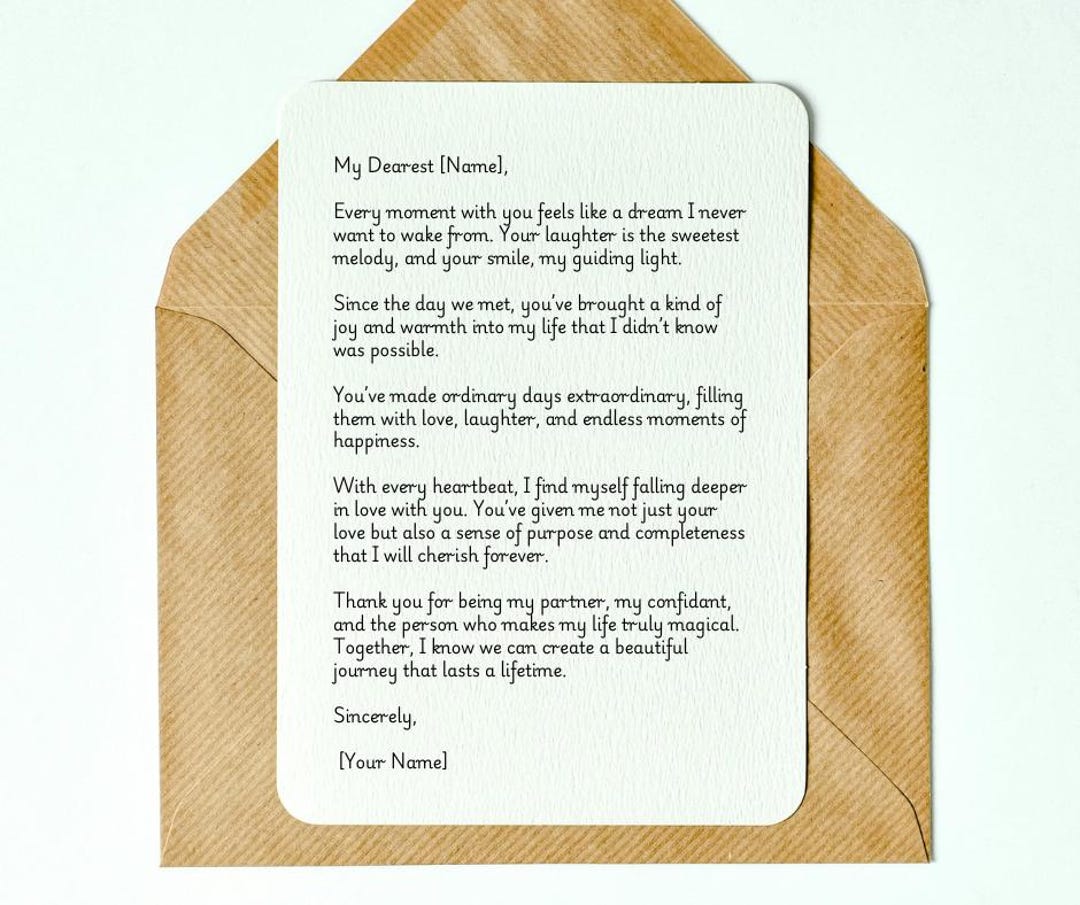 My Dearest [Name],
Every moment with you feels like a dream I never
want to wake from. Your laughter is the sweetest
melody, and your smile, my guiding light.
Since the day we met, you've brought a kind of
joy and warmth into my life that I didn't know
was possible.
You've made ordinary days extraordinary, filling
them with love, laughter, and endless moments of
happiness.
With every heartbeat, I find myself falling deeper
in love with you. You've given me not just your
love but also a sense of purpose and completeness
that I will cherish forever.
Thank you for being my partner, my confidant,
and the person who makes my life truly magical.
Together, I know we can create a beautiful
journey that lasts a lifetime.
Sincerely,
[Your Name]